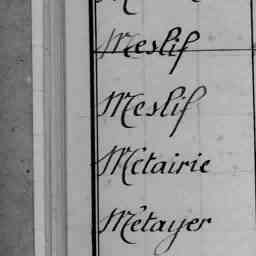 Meslif
Meslif
Métairie
Métayer